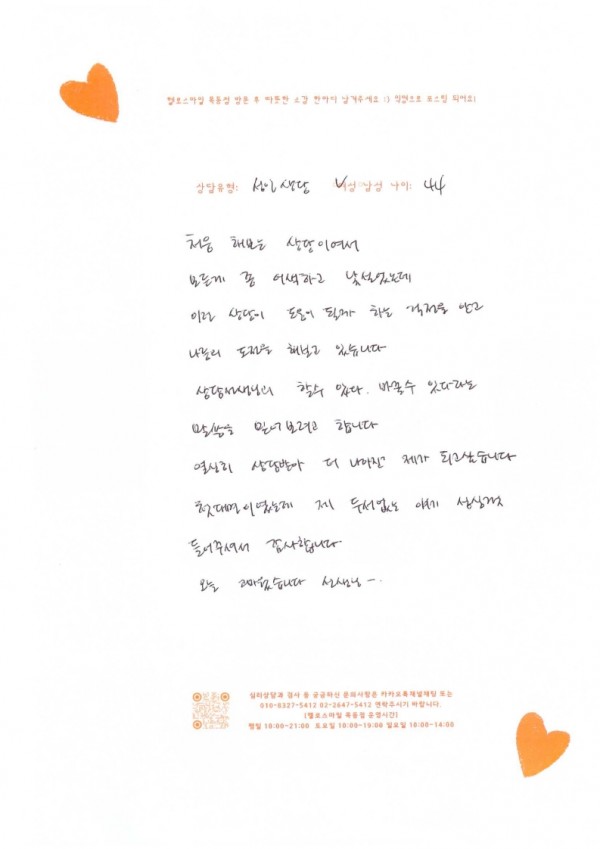 헬로스마일 목동점 방문 후 따뜻한 소감 한마디 남겨주세요 :) 익명으로 포스팅 되어요!
상담유형: 성인상담 ✓여성 □남성 나이: 44
처음 해보는 상담이여서
모든게 좀 어색하고 낯설었는데
이런 상담이 도움이 될까 하는 걱정을 안고
나름의 도전을 해보고 있습니다
상담선생님의 할수 있다. 바꿀수 있다라는
말씀을 믿어보려고 합니다
열심히 상담받아 더 나아진 제가 되고싶습니다
첫대면이였는데 제 두서없는 얘기 성심껏
들어주셔서 감사합니다
오늘 고마웠습니다 선생님-.
심리상담과 검사 등 궁금하신 문의사항은 카카오톡채널채팅 또는
010-8327-5412 02-2647-5412 연락주시기 바랍니다.
[헬로스마일 목동점 운영시간]
평일 10:00~21:00 토요일 10:00~19:00 일요일 10:00~14:00